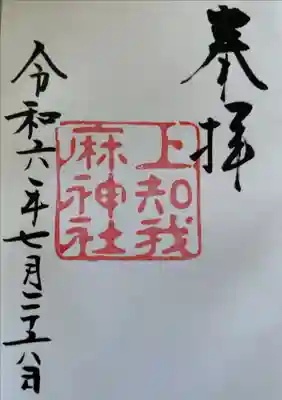 奉拝
上知我
麻神社
令和六年七月二十八日